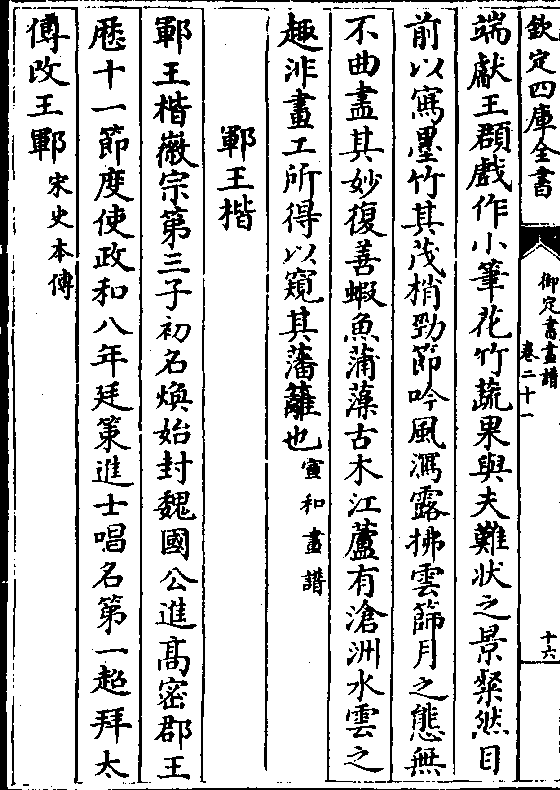 欽定四庫全書
御定書畫譜
卷二十一
十六
端獻王頵戲作小筆花竹蔬果與夫難狀之景粲然目
前以寫墨竹其茂梢勁節吟風瀉露拂雲篩月之態無
不曲盡其妙復善蝦魚蒲藻古木江蘆有滄洲水雲之
趣非畫工所得以窺其藩籬也宣和畫譜
鄆王楷
鄆王楷徽宗第三子初名煥始封魏國公進高密郡王
歷十一節度使政和八年廷策進士唱名第一超拜太
傅改王鄆宋史本傳